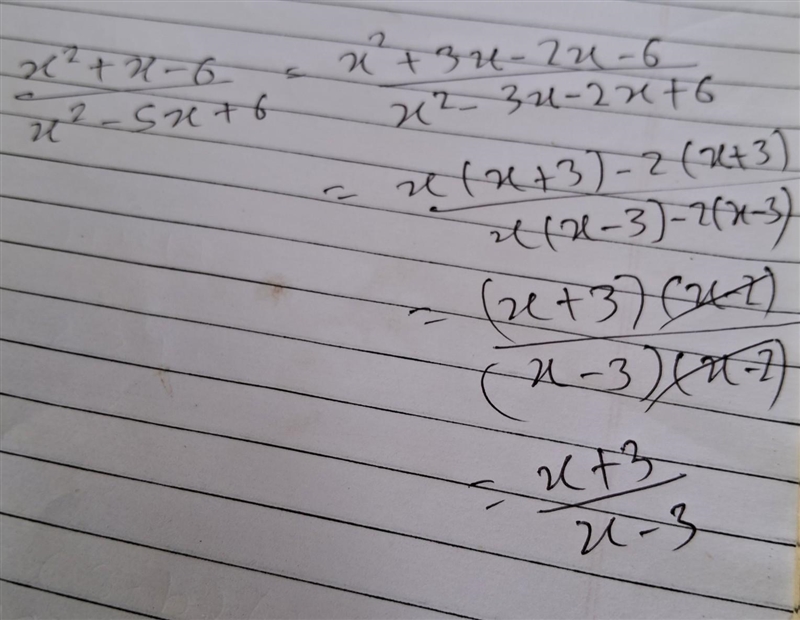 x² + x - 6 / x² - 5x + 6 = x² + 3x - 2x - 6 / x² - 3x - 2x + 6
= x(x+3) - 2(x+3) / x(x-3) - 2(x-3)
= (x+3)(x-2) / (x-3)(x-2)
= x+3 / x-3